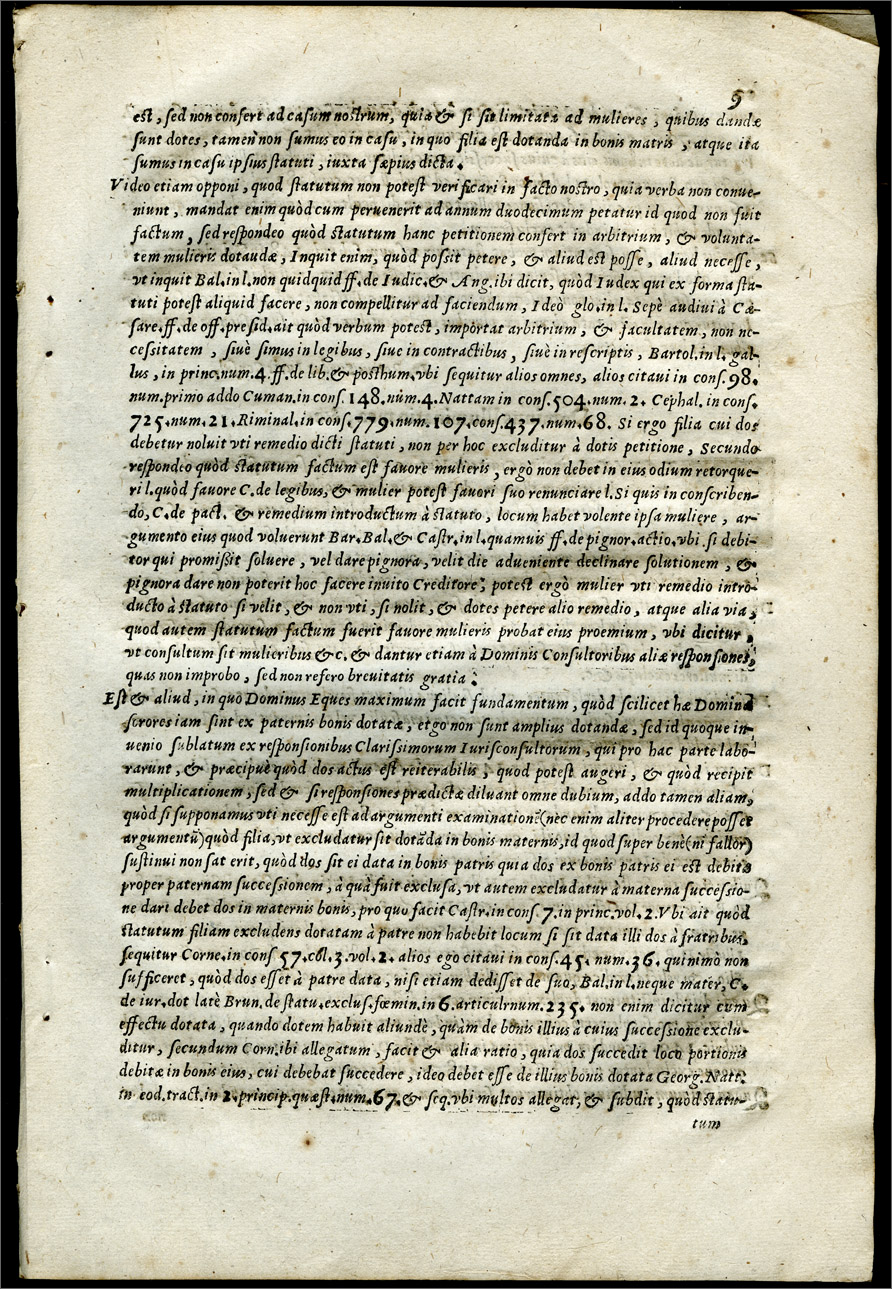 9
est, sed non confert ad casum nostrum, quia & si sit limitata ad mulieres, quibus dandæ
sunt dotes, tamen non sumus eo in casu, in quo filia est dotanda in bonis matris, atque ita
sumus in casu ipsius statuti, iuxta sæpius dicta.
Video etiam opponi, quod statutum non potest verificari in facto nostro, quia verba non conue-
niunt, mandat enim quòd cum peruenerit ad annum duodecimum petatur id quod non fuit
factum, sed respondeo quòd statutum hanc petitionem confert in arbitrium, & volunta-
tem mulieris dotandæ, Inquit enim, quòd possit petere, & aliud est posse, aliud necesse,
vt inquit Bal. in l. non quidquid ff. de Iudic. & Ang. ibi dicit, quòd Iudex qui ex forma sta-
tuti potest aliquid facere, non compellitur ad faciendum, Ideò glo. in l. Sepè audiui à Cæ-
sare. ff. de off. presid. ait quòd verbum potest, importat arbitrium, & facultatem, non ne-
cessitatem, siuè simus in legibus, siue in contractibus, siuè in rescriptis, Bartol. in l. gal-
lus, in princ. num. 4. ff. de lib. & posthum. vbi sequitur alios omnes, alios citaui in cons. 98.
num. primo addo Cuman. in cons. 148. num. 4. Nattam in cons. 504. num. 2. Cephal. in cons.
725. num. 21. Riminal. in cons. 779. num. 107. cons. 437. num. 68. Si ergo filia cui dos
debetur noluit vti remedio dicti statuti, non per hoc excluditur à dotis petitione, Secundo
respondeo quòd statutum factum est fauore mulieris, ergò non debet in eius odium retorque-
ri l. quòd fauore C. de legibus, & mulier potest fauori suo renunciare l. Si quis in conscriben-
do, C. de pact. & remedium introductum à statuto, locum habet volente ipsa muliere, ar-
gumento eius quod voluerunt Bar. Bal. & Castr. in l. quamuis ff. de pignor. actio. vbi si debi-
tor qui promißit soluere, vel dare pignora, velit die adueniente declinare solutionem, &
pignora dare non poterit hoc facere inuito Creditore; potest ergò mulier vti remedio intro-
ducto à statuto si velit, & non vti, si nolit, & dotes petere alio remedio, atque alia via,
quod autem statutum factum fuerit fauore mulieris probat eius proemium, vbi dicitur,
vt consultum sit mulieribus & c. & dantur etiam à Dominis Consultoribus aliæ responsiones,
quas non improbo, sed non refero breuitatis gratia:
Est & aliud, in quo Dominus Eques maximum facit fundamentum, quòd scilicet hæ Dominæ
sorores iam sint ex paternis bonis dotatæ, ergo non sunt amplius dotandæ, sed id quoque in-
uenio sublatum ex responsionibus Clarissimorum Iurisconsultorum, qui pro hac parte labo-
rarunt, & præcipuè quòd dos actus est reiterabilis, quod potest augeri, & quòd recipit
multiplicationem, sed & si responsiones prædictæ diluant omne dubium, addo tamen aliam,
quòd si supponamus vti necesse est ad argumenti examinationē (nèc enim aliter procedere posset
argumentū) quòd filia, vt excludatur sit dotāda in bonis maternis, id quod super benè (ni fallor)
sustinui non sat erit, quòd dos sit ei data in bonis patris quia dos ex bonis patris ei est debita
proper paternam successionem, à quâ fuit exclusa, vt autem excludatur à materna successio-
ne dari debet dos in maternis bonis, pro quo facit Castr. in cons. 7. in princ. vol. 2. Vbi ait quòd
statutum filiam excludens dotatam à patre non habebit locum si sit data illi dos à fratribus,
sequitur Corne. in cons 57. col. 3. vol. 2. alios ego citaui in cons. 45. num. 36. quinimò non
sufficeret, quòd dos esset à patre data, nisi etiam dedisset de suo, Bal. in l. neque mater, C.
de iur. dot latè Brun. de statu. exclus. fœmin. in 6. articulr num. 235. non enim dicitur cum
effectu dotata, quando dotem habuit aliundè, quàm de bonis illius à cuius successione exclu-
ditur, secundum Corn. ibi allegatum, facit & alia ratio, quia dos succedit loco portionis
debitæ in bonis eius, cui debebat succedere, ideo debet esse de illius bonis dotata Georg. Natt.
in eod. tract. in 2. princip. quæst. num. 67. & seq. vbi multos allegat, & subdit, quòd statu-
tum